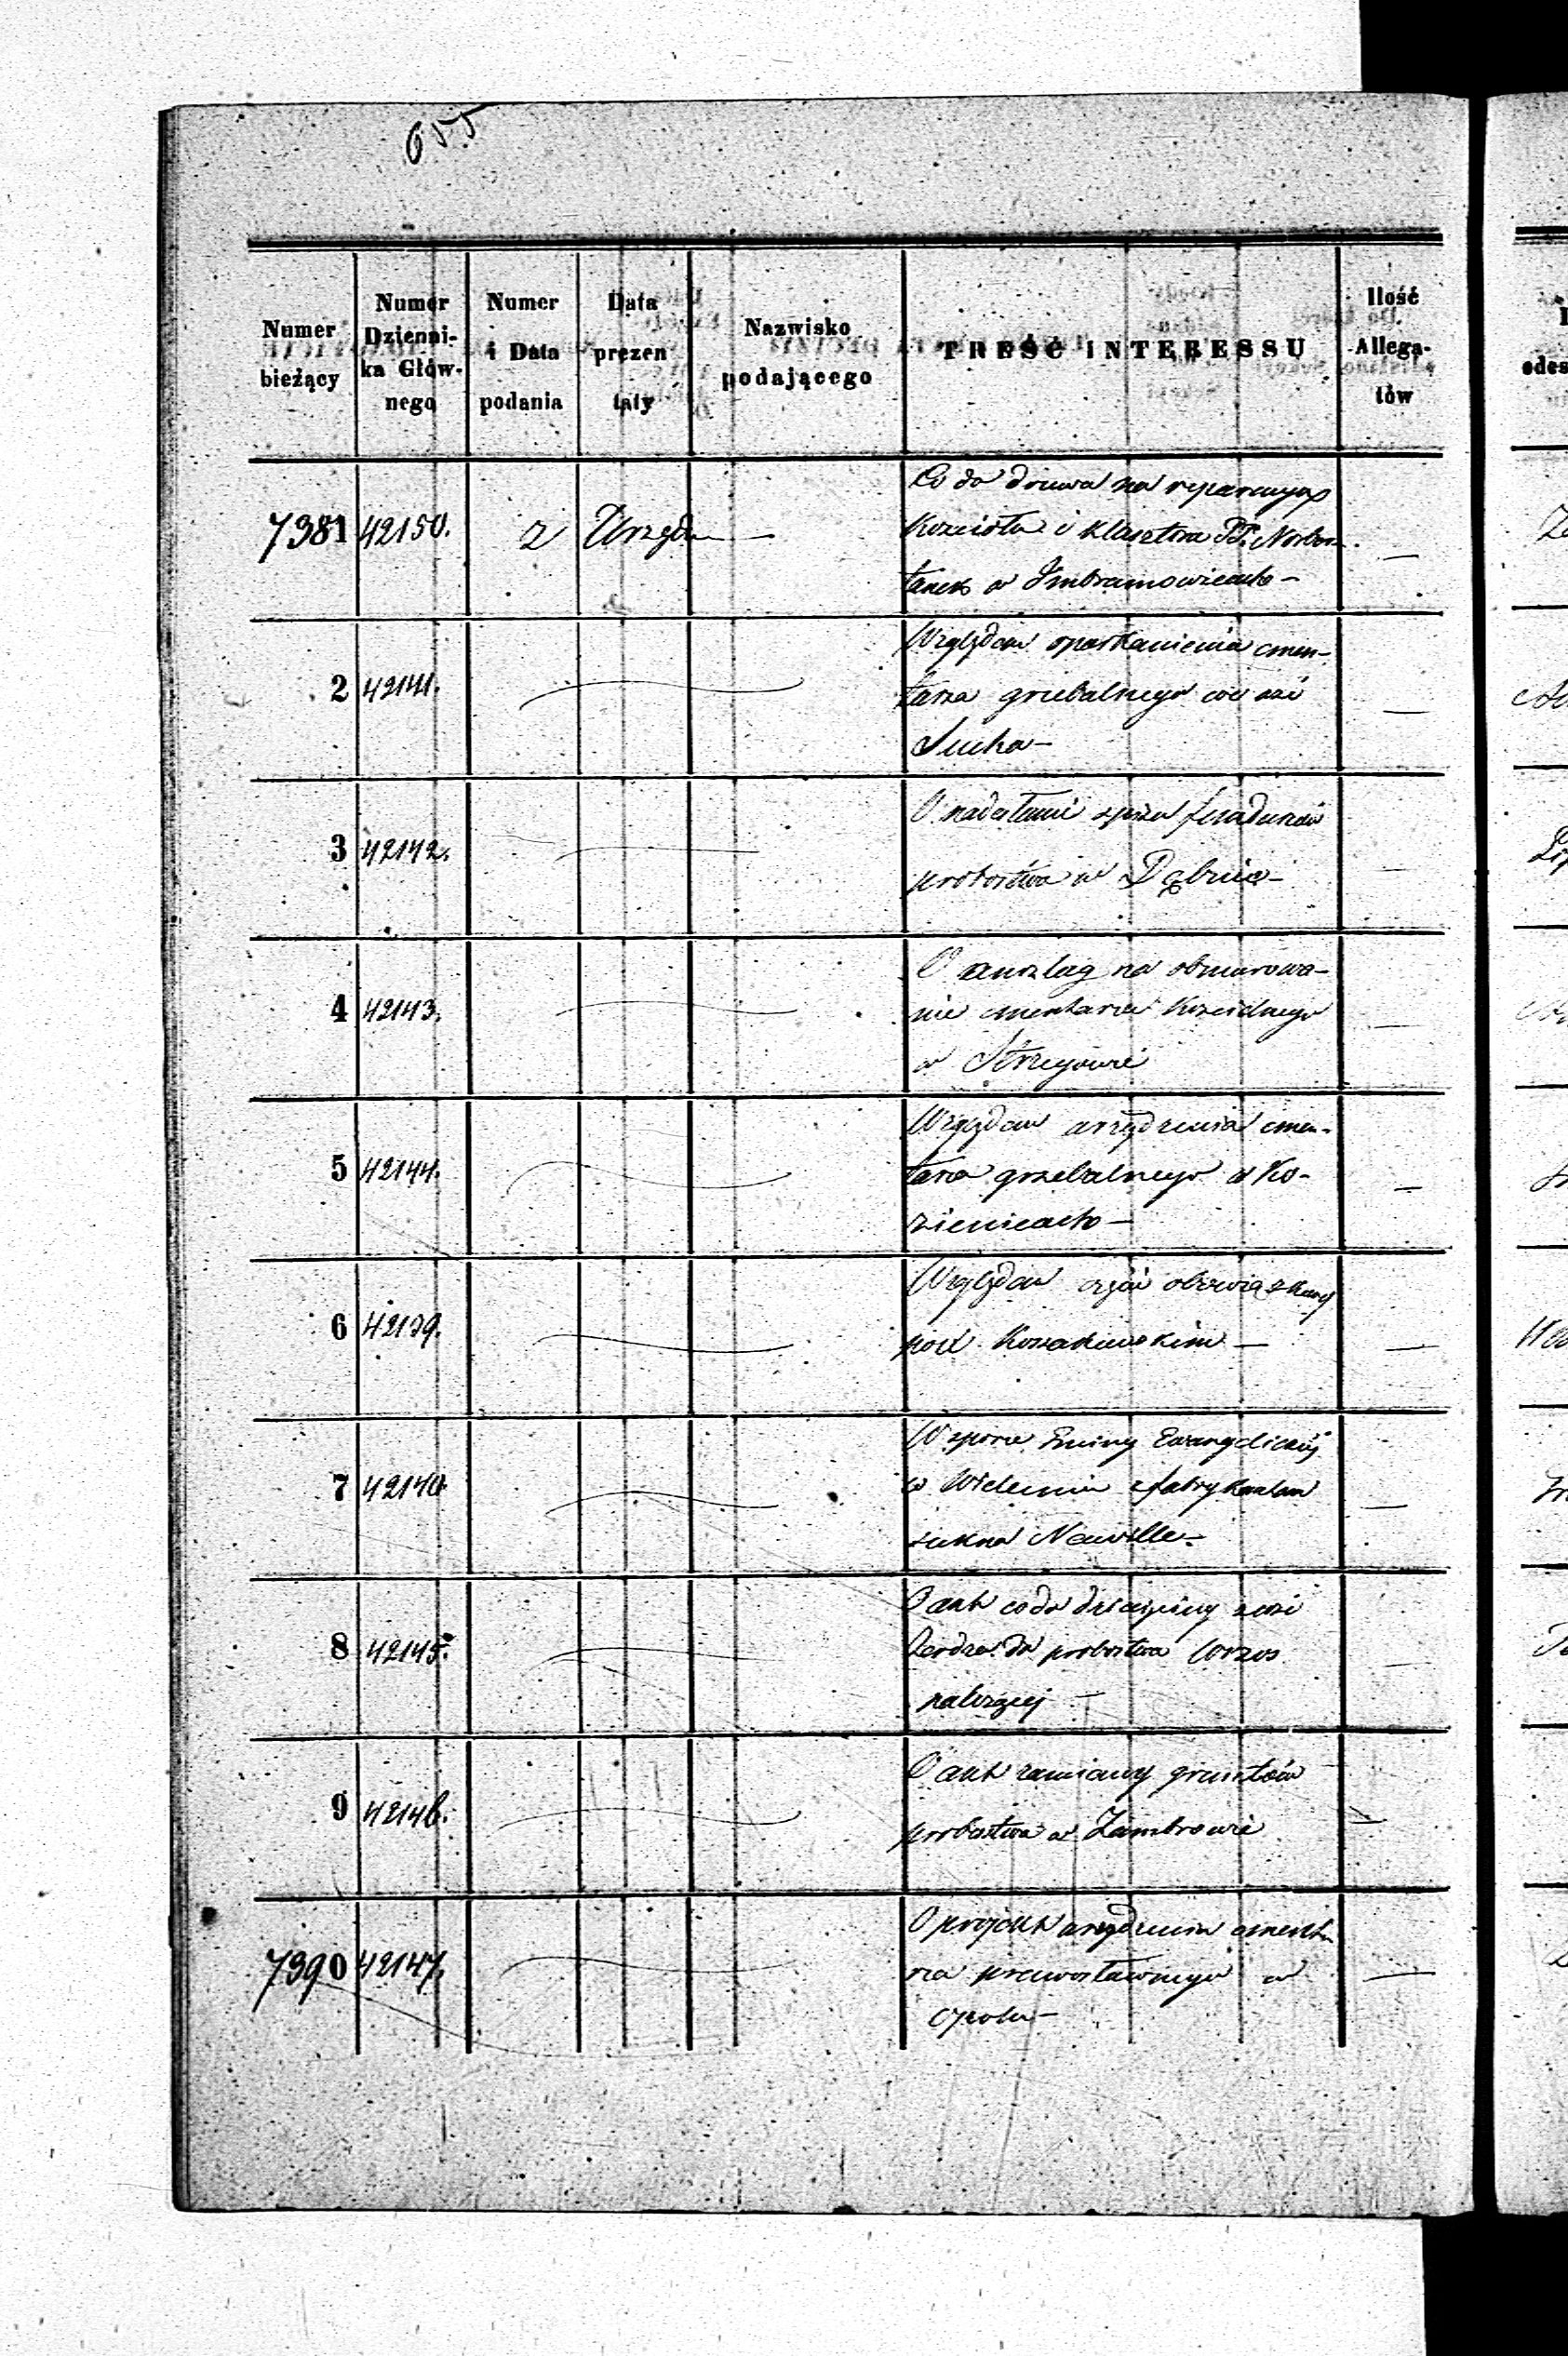 655
Numer bieżący | Numer Dzienni-ka Głów-nego | Numer i Data podania | Data prezen taty | Nazwisko podającego | TREŚĆ INTERESSU | Ilość Allega-tów
7381 | 42150. | 2 | Urzędu — | Co do drzewa na reparacyą
Kościoła i Klasztoru PP. Norber-
tanek w Imbramowicach —
2 | 42141. | Względem oparkanienia cmen-
tarza grzebalnego we wsi
Sucha —
3 | 42142. | O nadesłanie funduszów
probostwa w Dąbrie —
4 | 42143. | O anszlag na obmurowa-
nie cmentarza Kościelnego
w Strzegowie
5 | 42144. | Względem urządzenia cmen-
tarza grzebalnego w Ko-
zienicach —
6 | 42139. | Względem
pod —
7 | 42140. | W sporze Gminy Ewangelickiéj
w Wieluniu z fabrykantem
sukna Neuville —
8 | 42145. | O akt co do dziesięciny z wsi
do probostwa
należącej —
9 | 42146. | O akt zamiany gruntów
probostwa w Zambrowie
7390 | 42147. | O projekt urządzenia cmenta
rza prawosławnego w
Opolu —